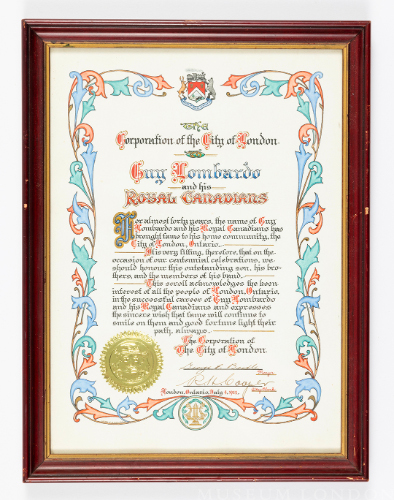 The
Corporation of the City of London
to
Guy Lombardo
and his
ROYAL CANADIANS
For almost forty years, the name of Guy
Lombardo and his Royal Canadians has
brought fame to his home community, the
City of London, Ontario.
It is very fitting, therefore, that on the
occasion of our centennial celebrations, we
should honour this outstanding son, his bro-
thers, and the members of his band.
This scroll acknowledges the keen
interest of all the people of London, Ontario,
in the successful career of Guy Lombardo
and his Royal Canadians and expresses
the sincere wish that fame will continue to
smile on them and good fortune light their
path, always.
The Corporation of
The City of London.
Mayor
City Clerk
London, Ontario, July 1,